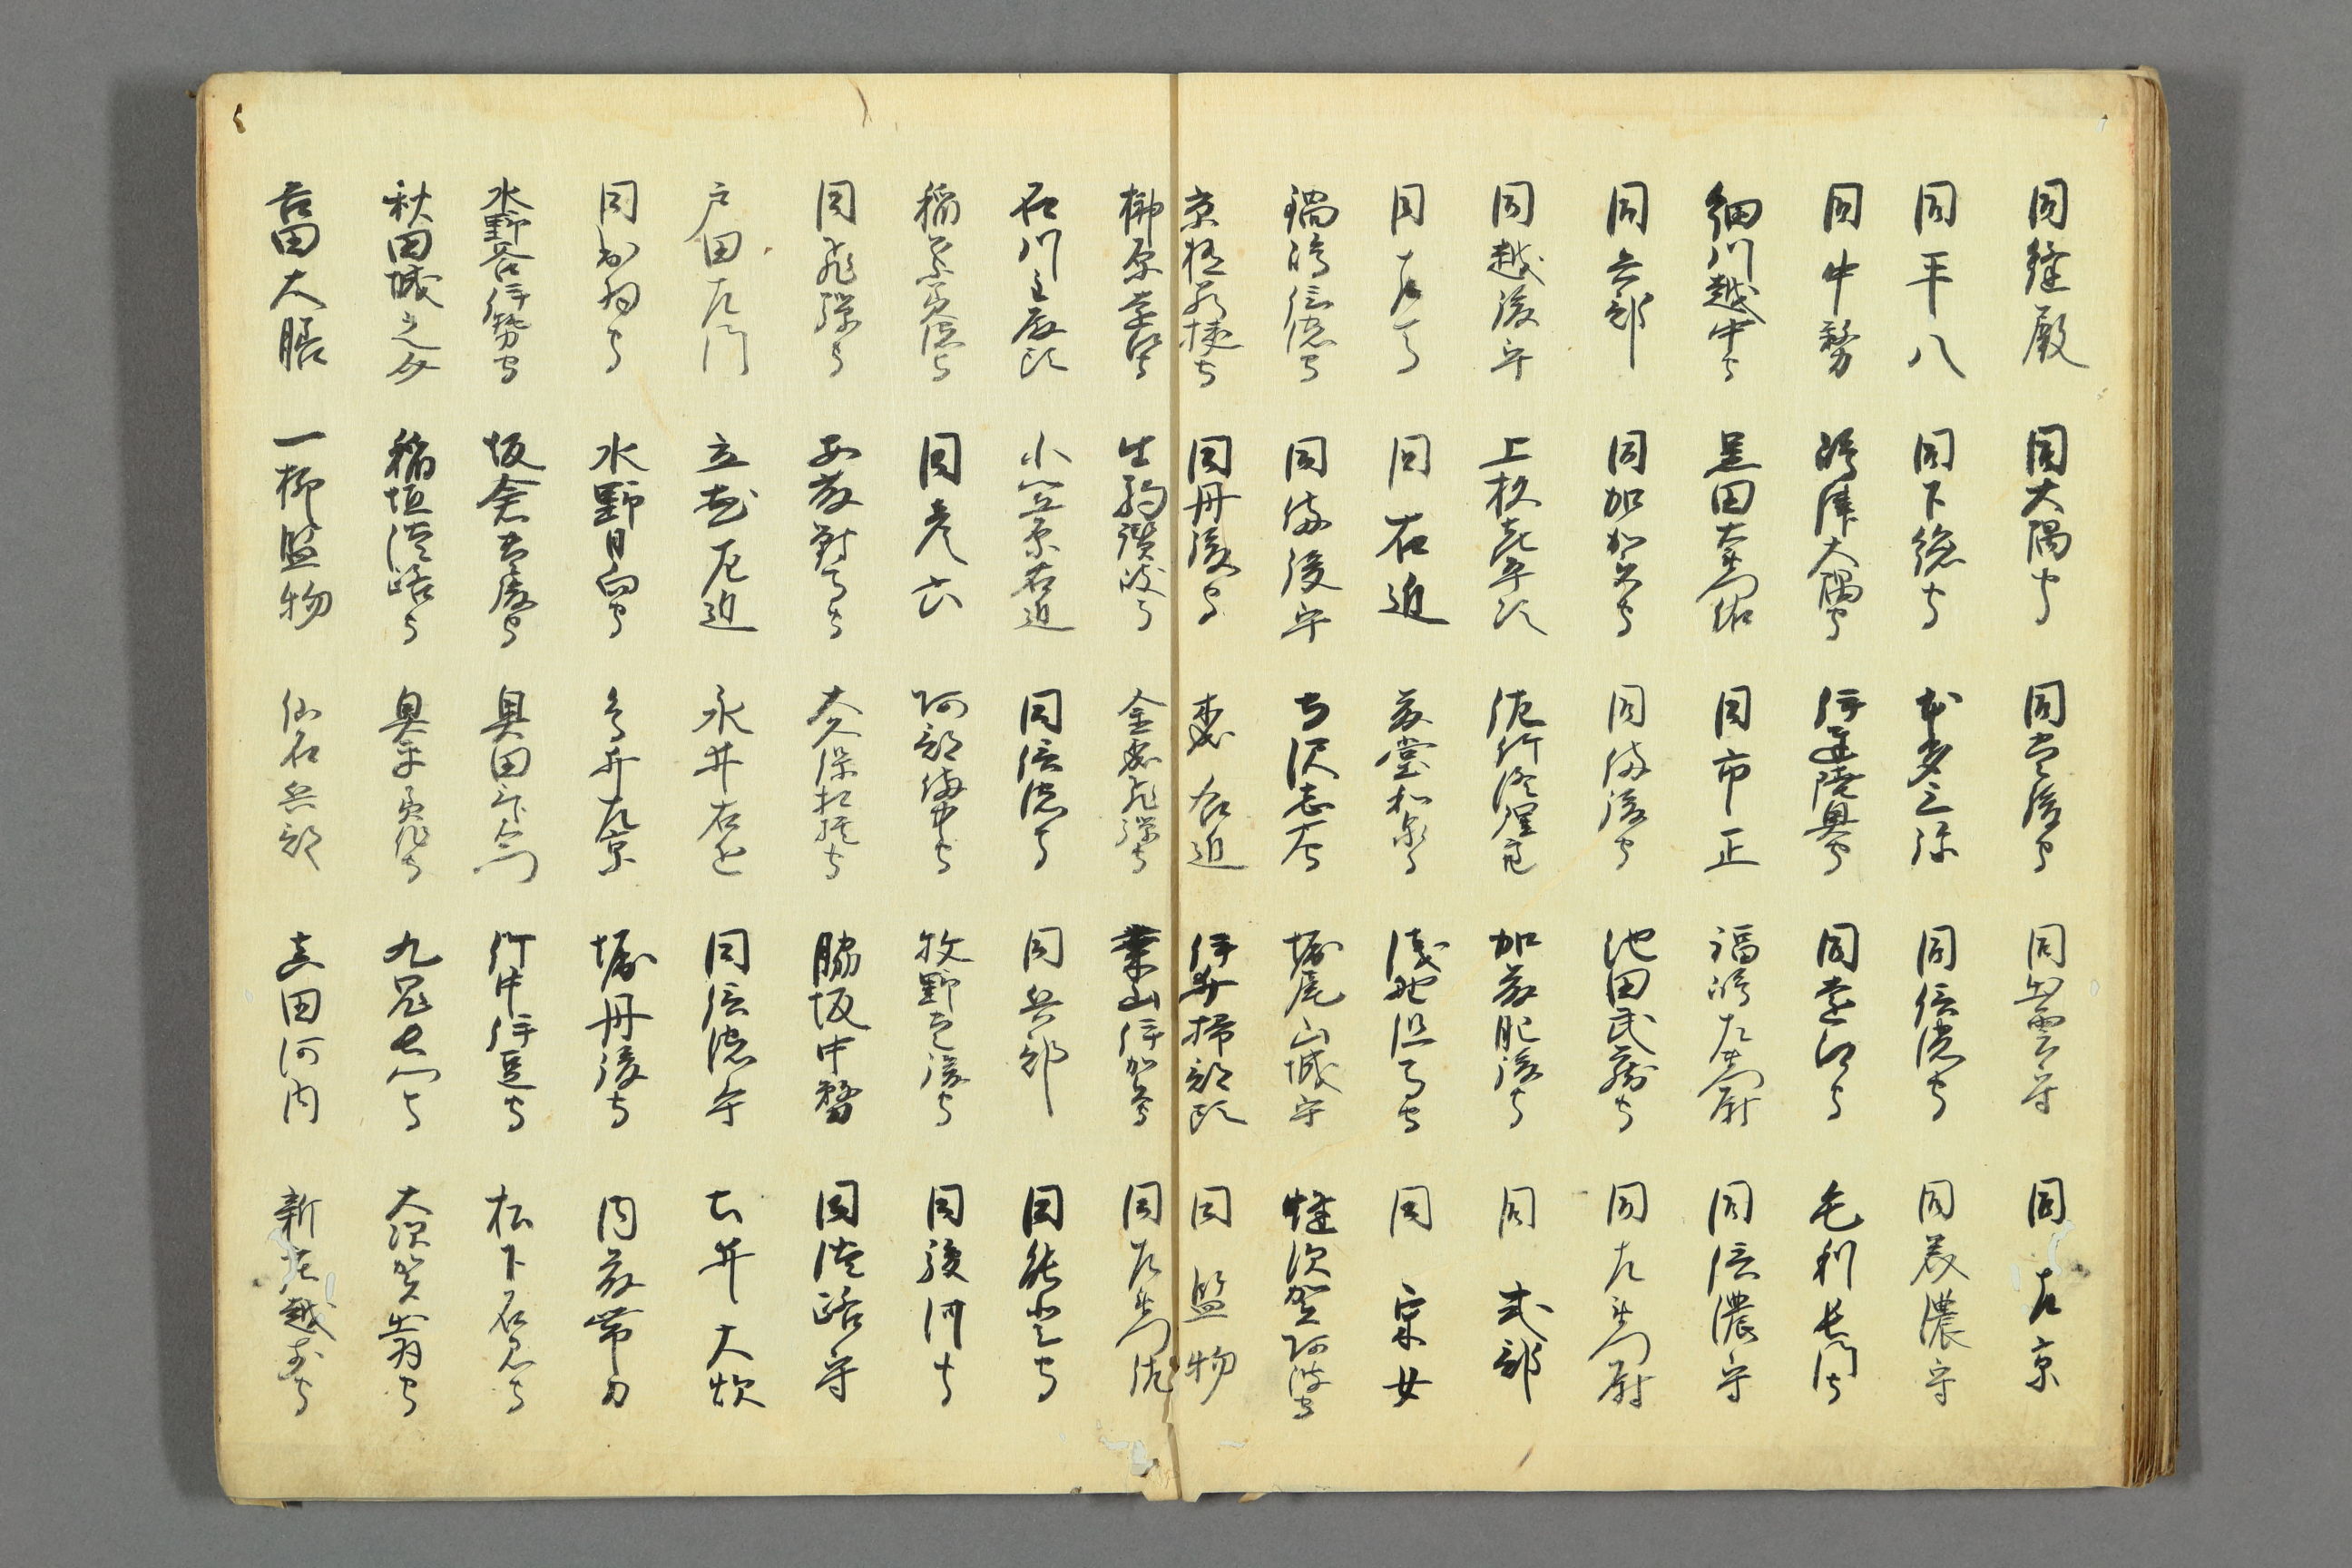 同縫殿 同大隅守 同豊後守 同出雲守 同左京
同平八 同下総守 本多三弥 同信濃守 同美濃守
同中務 嶋津大隅守 伊達陸奥守 同遠江守 毛利長門守
細川越中守 黒田 同市正 福嶋左衛門尉 同信濃守
同兵部 同加賀守 同備後守 池田武蔵守 同左衛門尉
同越後守 上杉 佐竹修理 加藤肥後守 同式部
同 同右近 藤堂和泉守 浅野但馬守 同采女
鍋嶋信濃守 同備後守 寺沢志摩守 堀尾山城守 蜂須賀阿波守
京極若狭守 同丹後守 森右近 伊井掃部頭 同監物
榊原 生駒讃岐守 金森飛騨守 桑山伊賀守 同左衛門佐
石川主殿頭 小笠原右近 同信濃守 同兵部 同能登守
稲葉 同彦六 阿部備中守 牧野豊後守 同駿河守
同飛騨守 安藤対馬守 大久保 脇坂中務 同淡路守
戸田左門 立花左近 永井右近 同信濃守 土井大炊
同 水野日向守 鳥井左京 堀丹後守 内藤帯刀
水野谷伊勢守 板倉 奥田 竹中伊豆守 松下石見守
秋田城之介 稲垣淡路守 奥平美作守 九鬼長門守 大須賀出羽守
古田大膳 一柳監物 仙石兵部 真田河内 新庄越前守